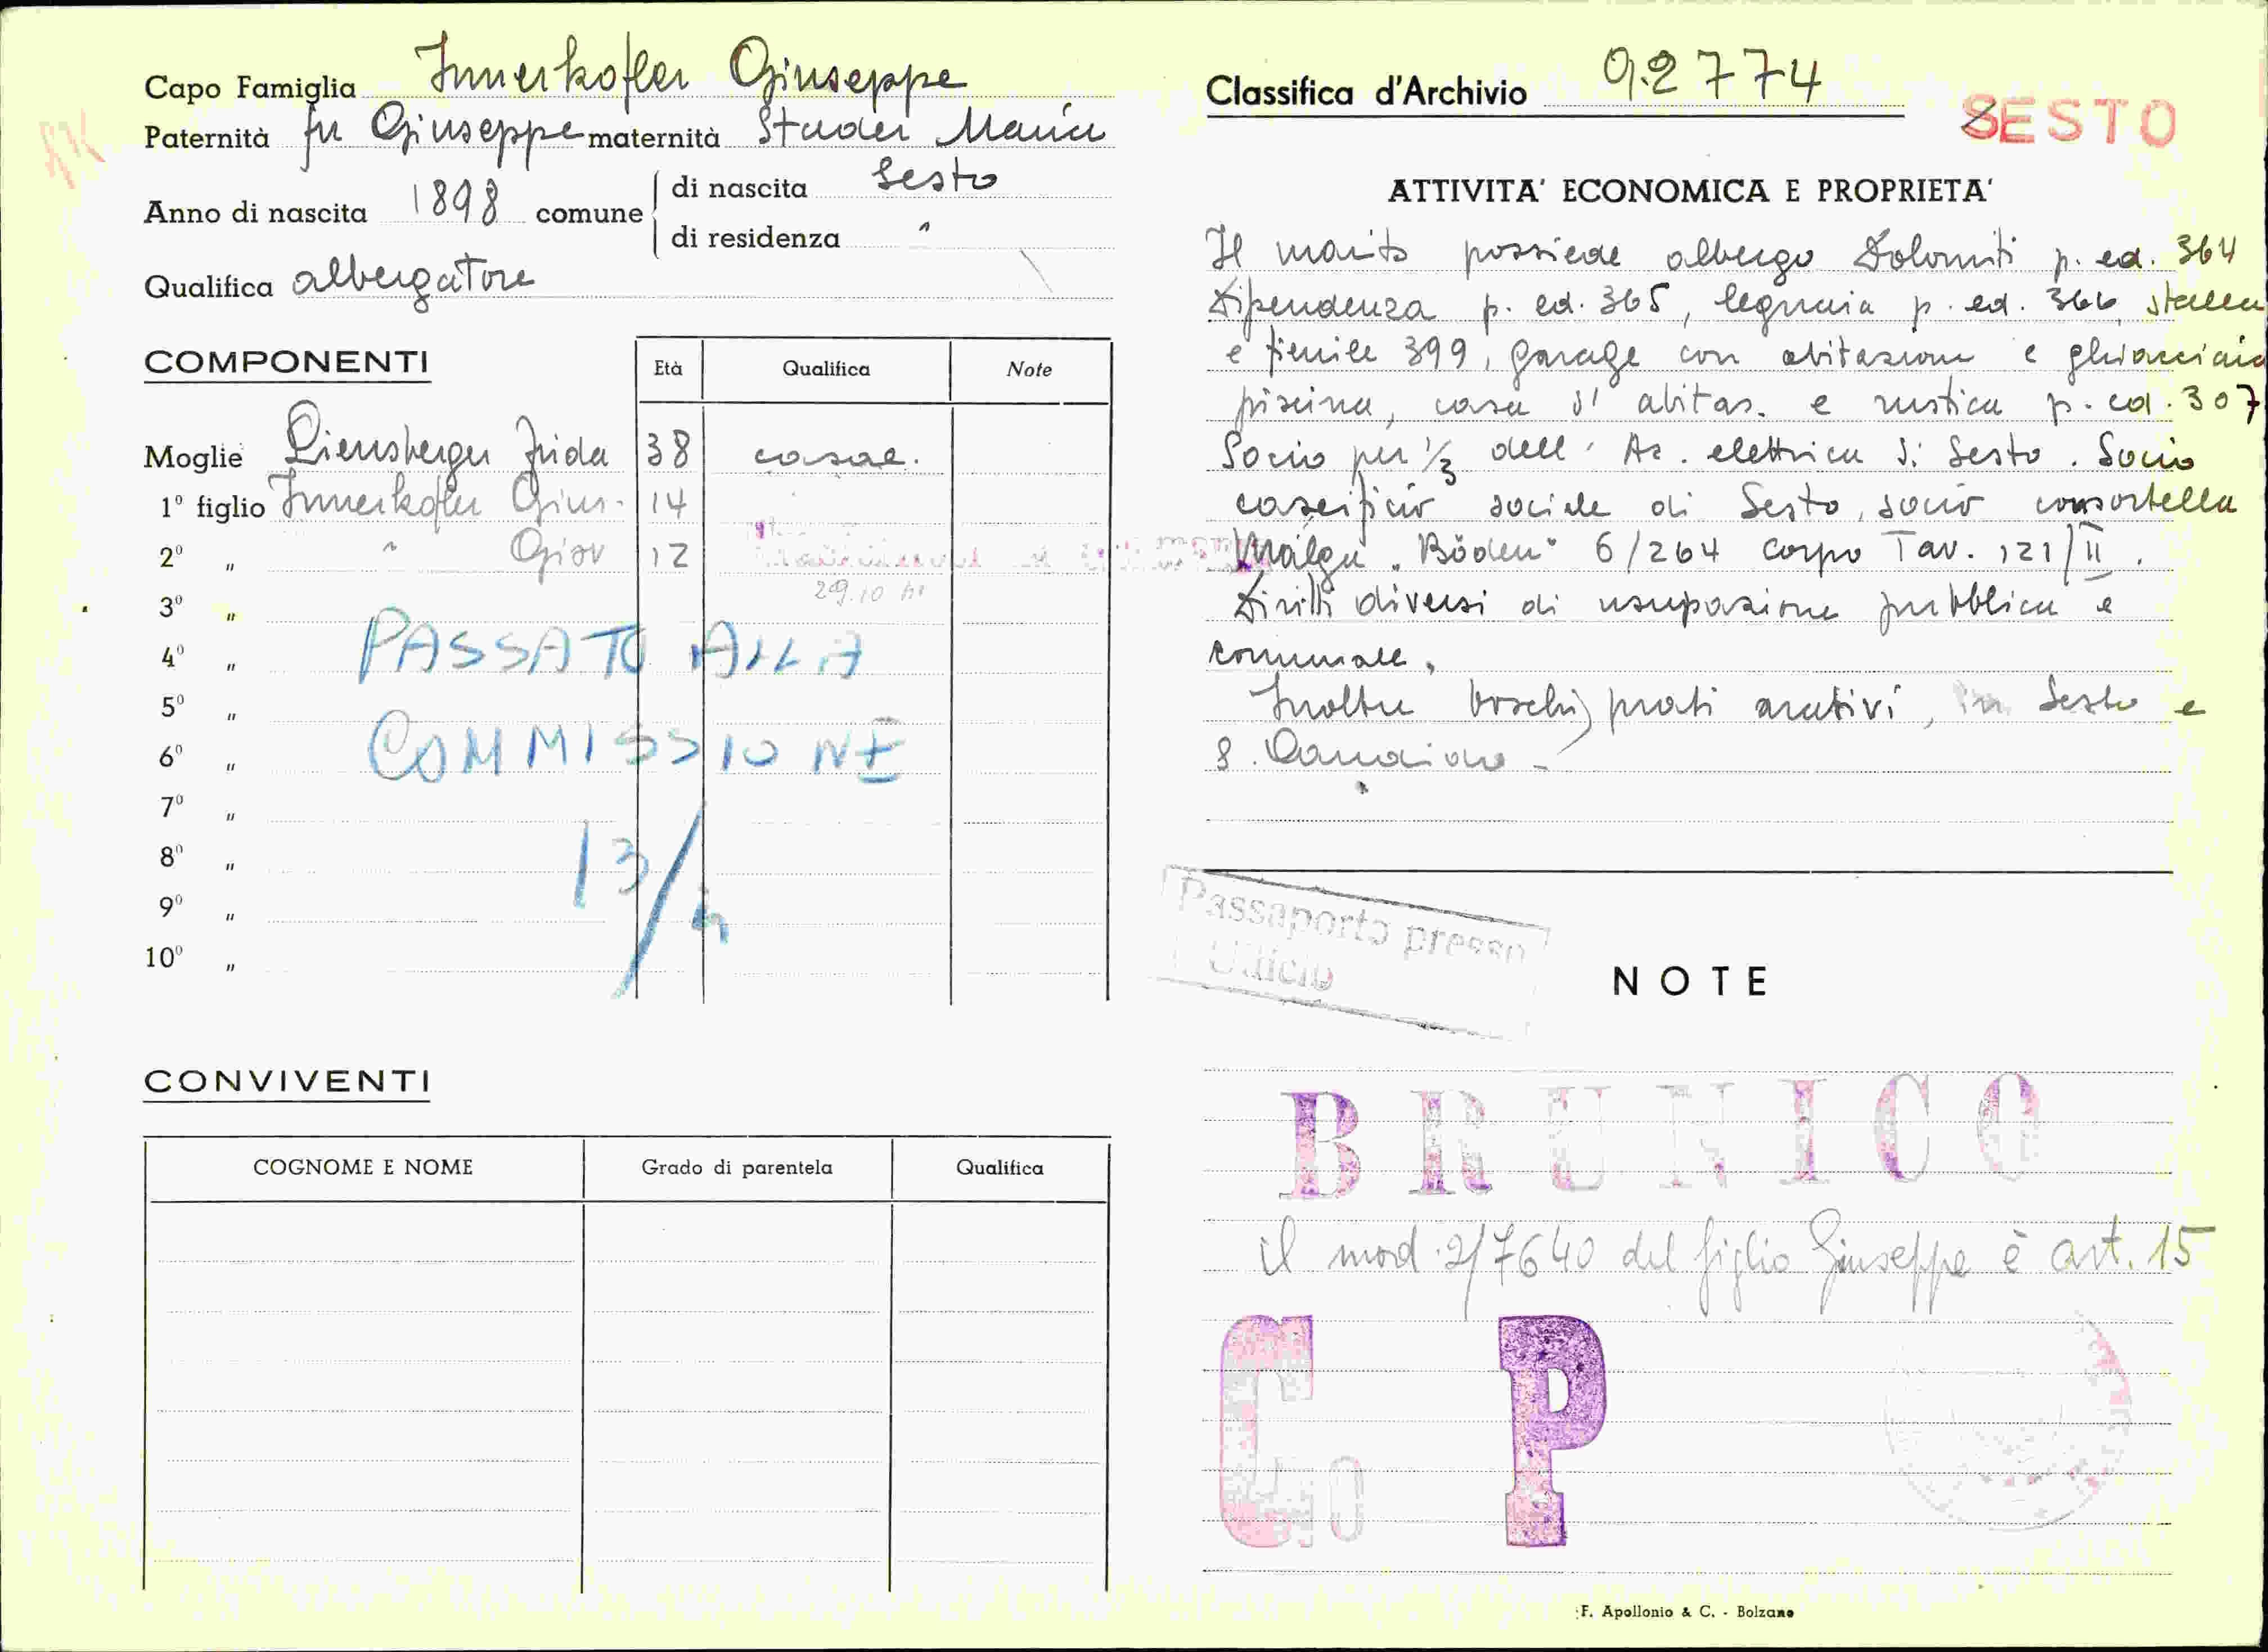 Capo Famiglia Innerkofler Giuseppe
Paternità fu Giuseppe maternità Studer Maria
Anno di nascita 1898 comune di nascita Sesto
di residenza "
Qualifica albergatore
COMPONENTI Età Qualifica Note
Moglie Liensberger Frida 38 casal.
1° figlio Innerkofler Gius. 14
2° " " Giov 12
29.10
3° "
4° " PASSATO ALLA
5° "
6° " COMMISSIONE
7° "
8° " 13/4
9° "
10° "
CONVIVENTI
COGNOME E NOME Grado di parentela Qualifica
Classifica d'Archivio 92774
SESTO
ATTIVITA' ECONOMICA E PROPRIETA'
Il marito possiede albergo Dolomiti p. ed. 364
Dipendenza p. ed. 365, legnaia p. ed. 366, stalla
e fienile 399, garage con abitazione e ghiacciaia
piscina, casa d'abitaz. e rustica p. ed. 307
Socio per 1/3 dell'Az. elettrica di Sesto. Socio
caseificio sociale di Sesto, socio consortella
Malga "Böden" 6/264 corpo Tav. 121/II.
Diritti diversi di usupazione pubblica e
comunale.
Inoltre boschi, prati arativi, in Sesto e
S. Candido -
Passaporto presso
Ufficio
NOTE
BRUNICO
il mod. 2/7640 del figlio Giuseppe è art. 15
P
F. Apollonio & C. - Bolzano